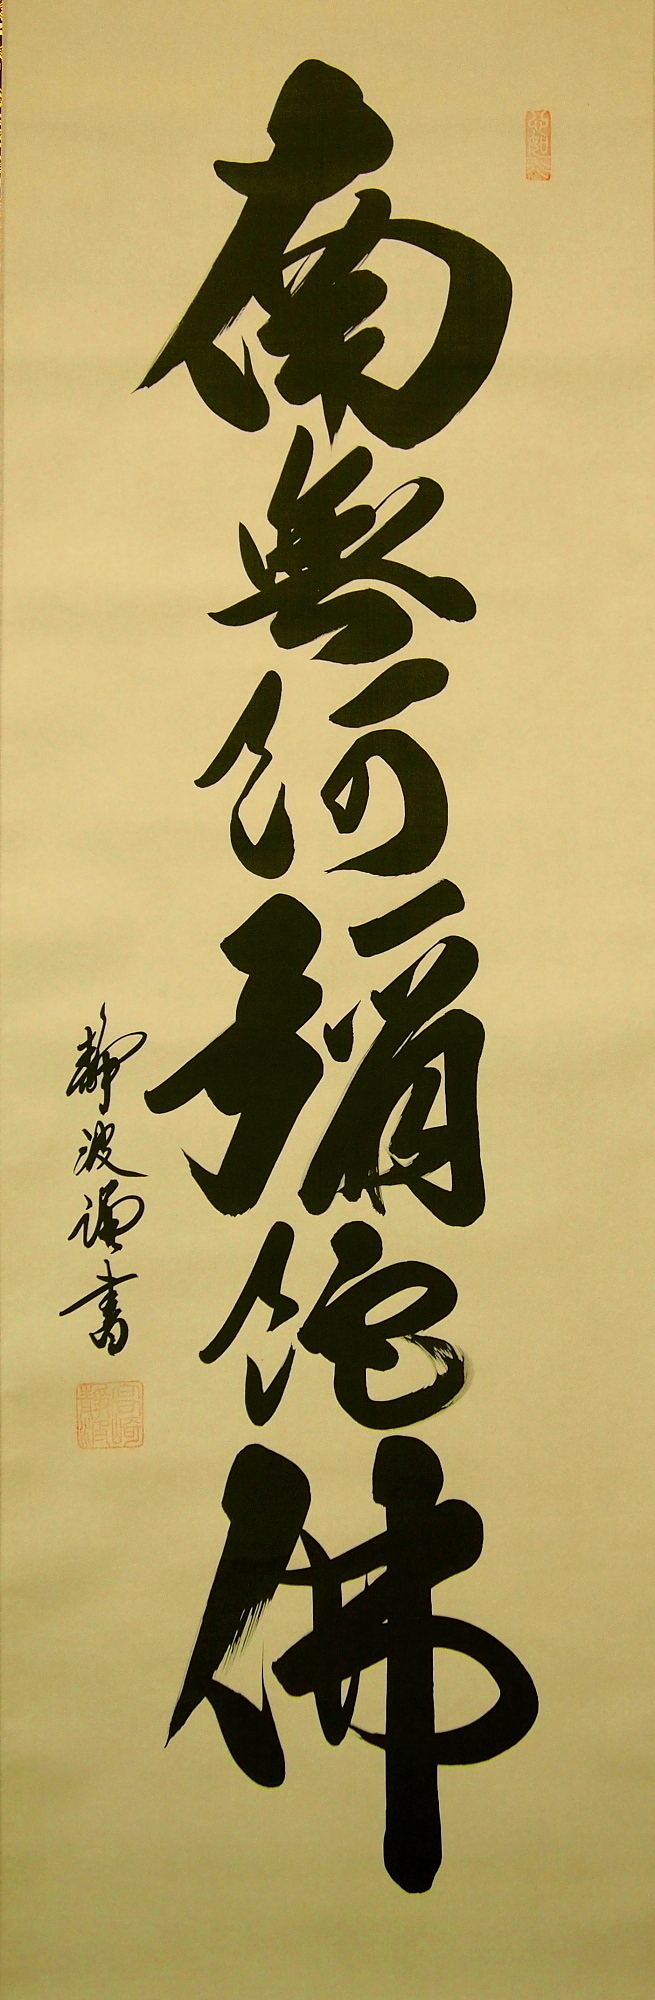 南無阿彌陀佛
静波謹書